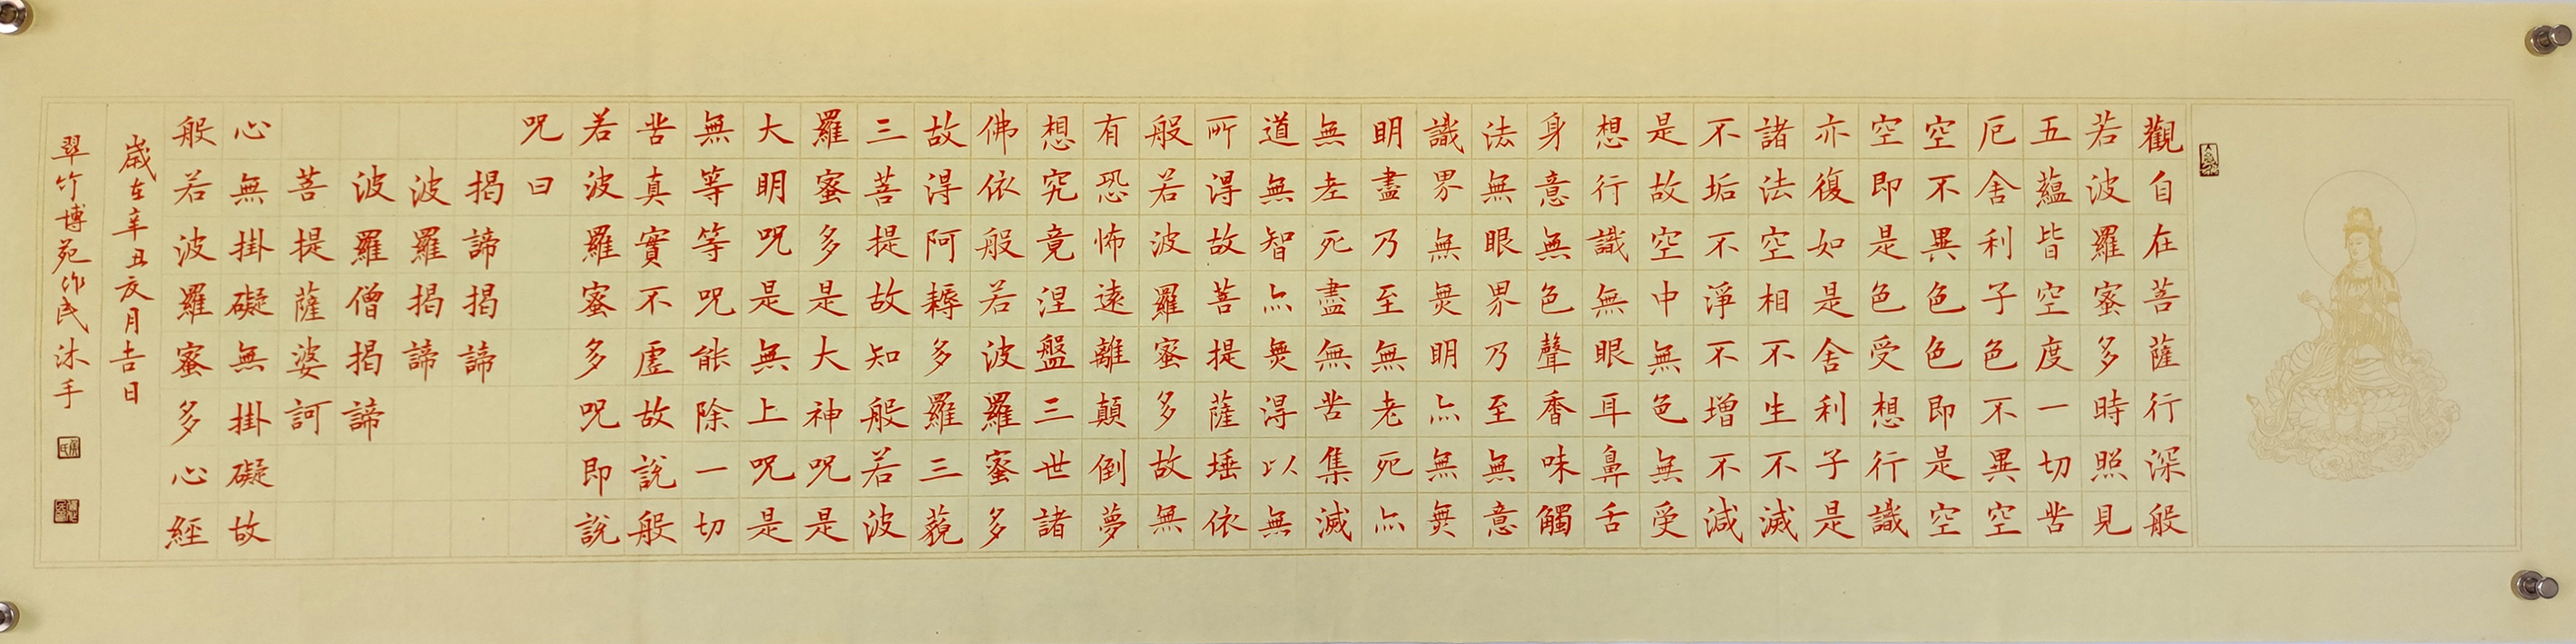 觀自在菩薩行深般
若波羅蜜多時照見
五蘊皆空度一切苦
厄舍利子色不異空
空不異色色即是空
空即是色受想行識
亦復如是舍利子是
諸法空相不生不滅
不垢不淨不增不減
是故空中無色無受
想行識無眼耳鼻舌
身意無色聲香味觸
法無眼界乃至無意
識界無無明亦無無
明盡乃至無老死亦
無老死盡無苦集滅
道無智亦無得以無
所得故菩提薩埵依
般若波羅蜜多故無
有恐怖遠離顛倒夢
想究竟涅盤三世諸
佛依般若波羅蜜多
故得阿耨多羅三藐
三菩提故知般若波
羅蜜多是大神咒是
大明咒是無上咒是
無等等咒能除一切
苦真實不虛故說般
若波羅蜜多咒即說
咒曰
揭諦揭諦
波羅揭諦
波羅僧揭諦
菩提薩婆訶
心無掛礙無掛礙故
般若波羅蜜多心經
歲在辛丑亥月吉日
翠竹博苑作民沐手